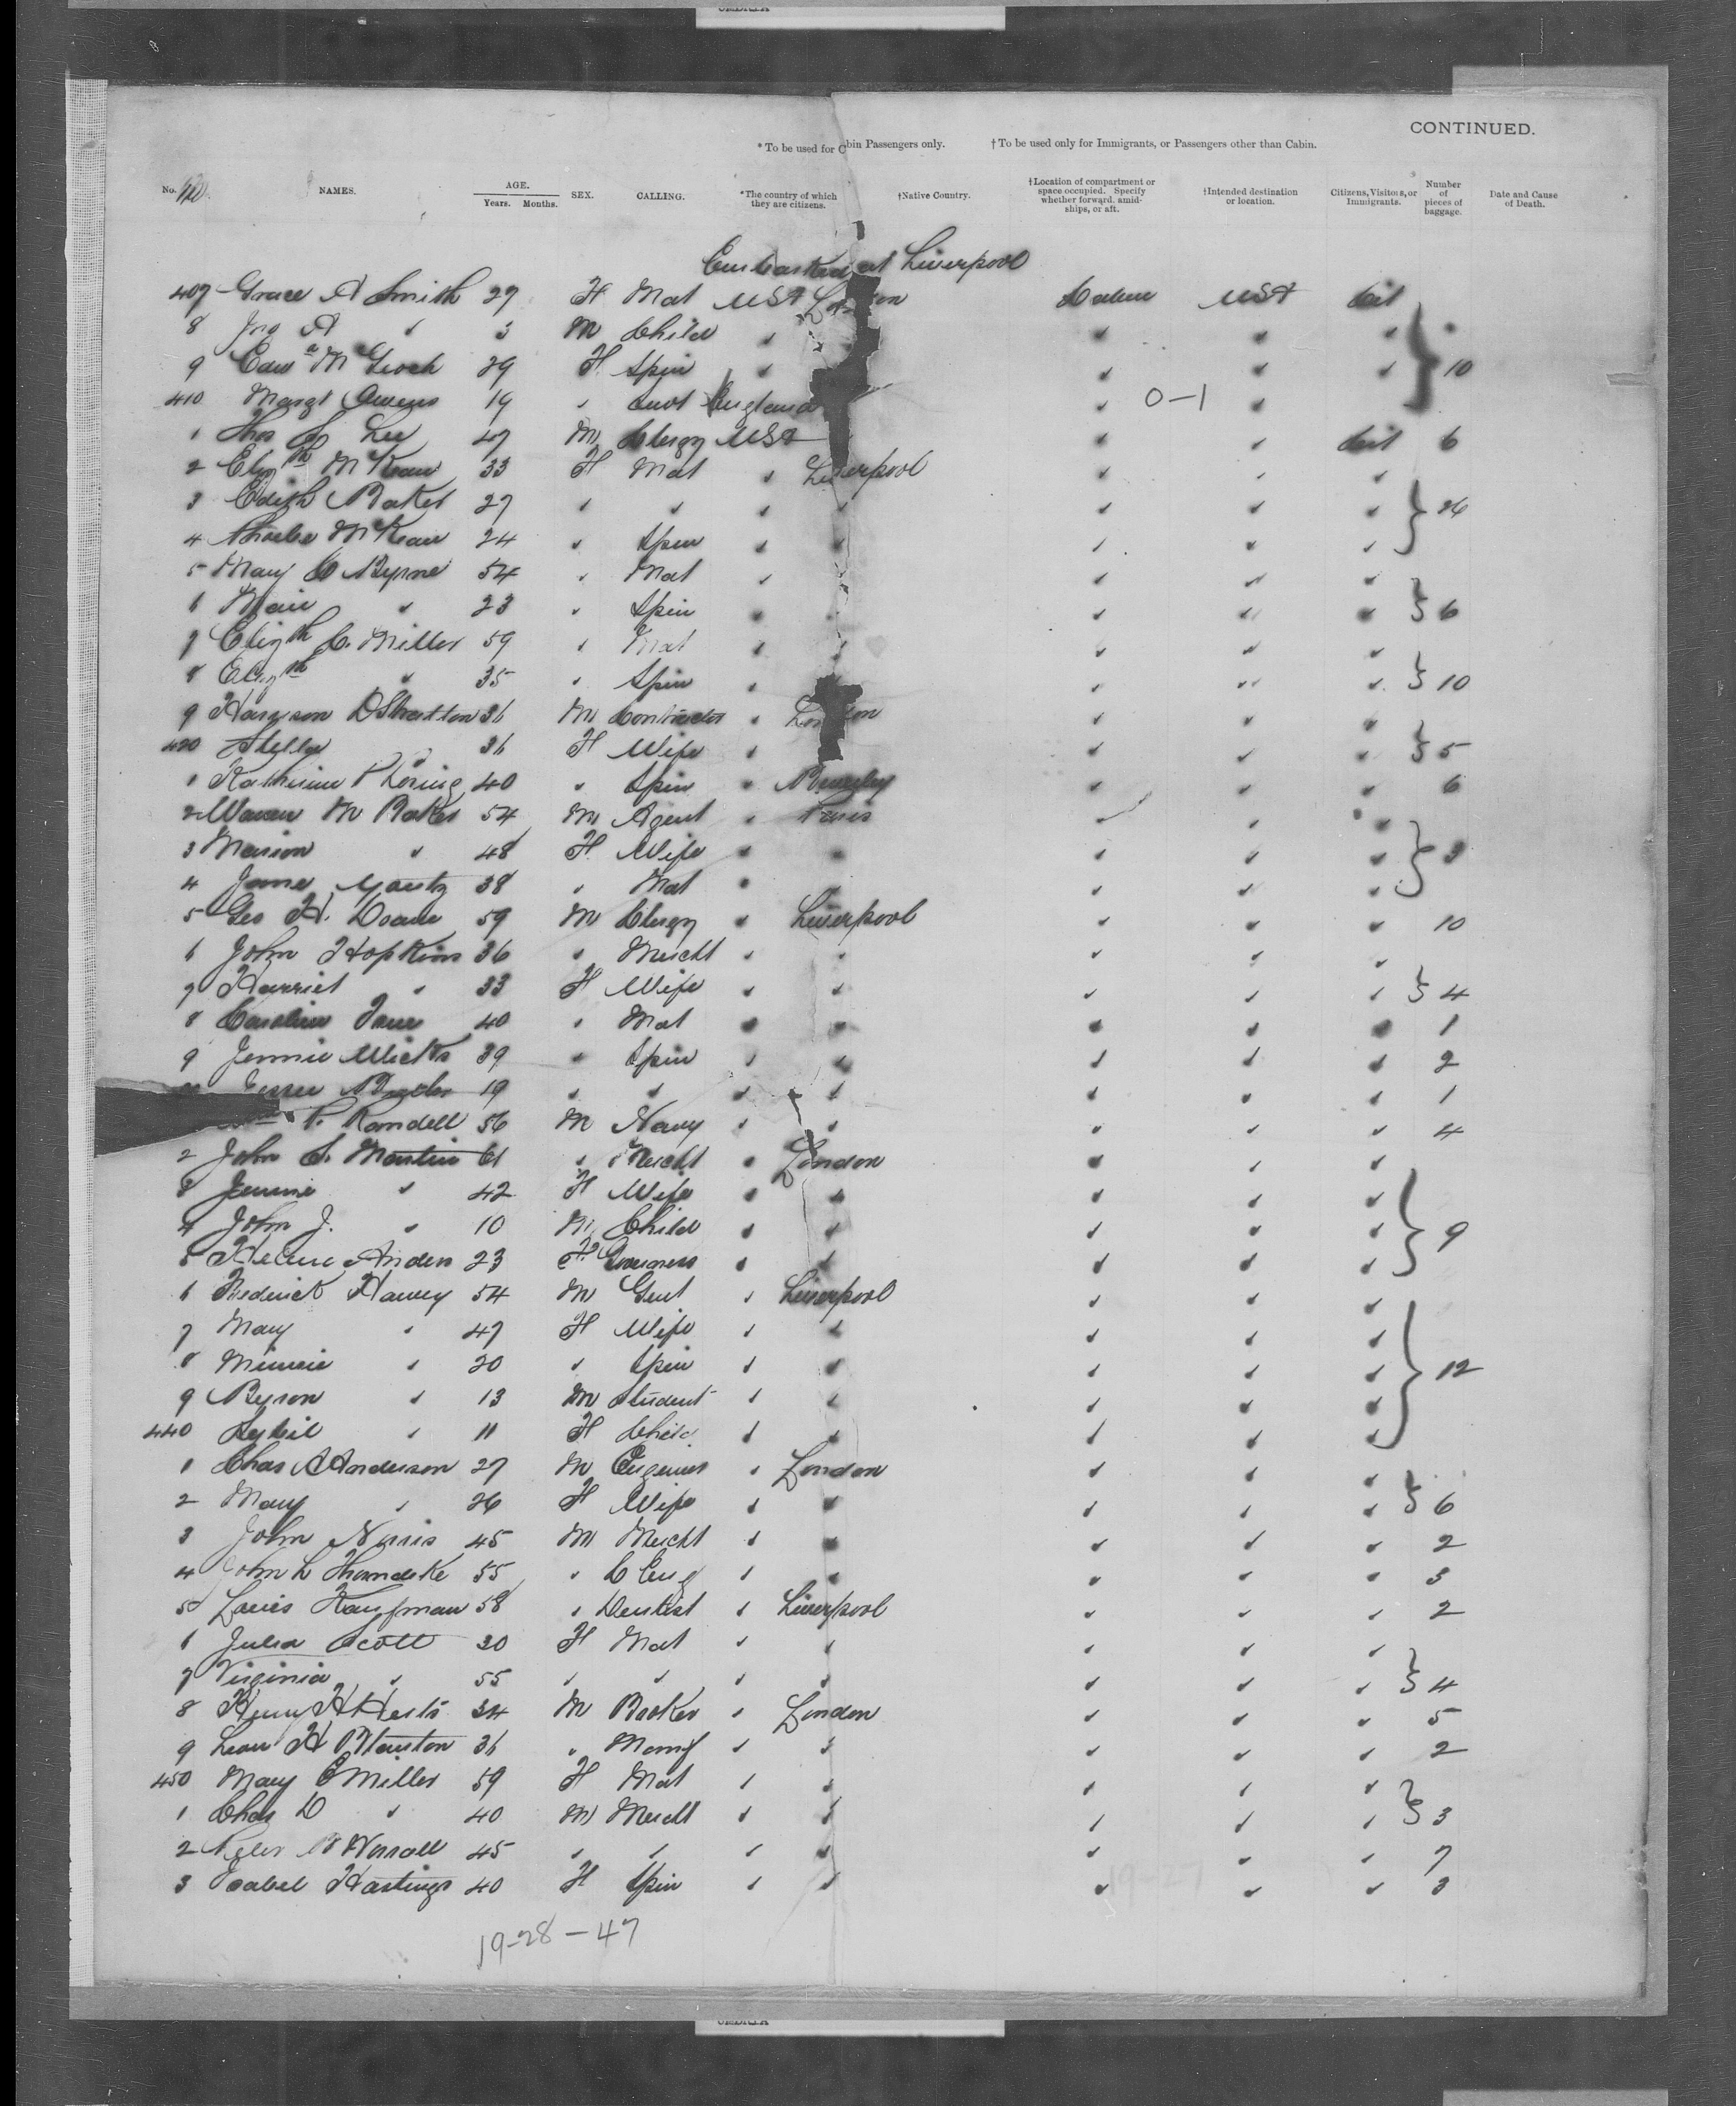 UMBRIA
CONTINUED.
* To be used for Cabin Passengers only. † To be used only for Immigrants, or Passengers other than Cabin.
No. NAMES. AGE. Years. Months. SEX. CALLING. *The country of which they are citizens. †Native Country. †Location of compartment or space occupied. Specify whether forward, amidships, or aft. †Intended destination or location. Citizens, Visitors, or Immigrants. Number of pieces of baggage. Date and Cause of Death.
Embarked at Liverpool
407 Grace A Smith 27 F Mat USA London Saloon USA Cit
8 Jno A " 3 M Child " " " "
9 Edw a M 29 F Spin " " " " 10
410 Margt Owens 19 " England " 0-1 "
1 Thos Lee 47 M Clergy USA " " Cit 6
2 Elizth McKean 33 F Mat " Liverpool " " "
3 Edith Baker 27 " " " " " " " 26
4 Phoebe McKean 24 " Spin " " " " "
5 Mary C Byrne 54 " Mat " " " "
6 " 23 " Spin " " " " " 6
7 Elizth C. Miller 59 " Mat " " " " "
8 Elizth " 35 " Spin " " " " 10
9 Harrison D Stratton 36 M Contractor " London " " "
420 Stella " 36 F Wife " " " " 5
1 Katherine P Loring 40 " Spin " Beverley " " " 6
2 Warren M Baker 54 M Agent " Paris " " "
3 Marion " 48 F Wife " " " " " 3
4 Jane 38 " Mat " " " " "
5 Geo H. Doane 59 M Clergy " Liverpool " " " 10
6 John Hopkins 36 " Mercht " " " " "
7 Harriet " 33 F Wife " " " " " 4
8 Caroline 40 " Mat " " " " " 1
9 Jennie Wicks 39 " Spin " " " " " 2
19 " " " " " " " 1
P. Randell 56 M Navy " " " " " 4
2 John S. Martin 61 " Mercht " London " " "
3 Jennie " 42 F Wife " " " " "
4 John J. " 10 M Child " " " " " 9
5 Helene Anders 23 F Governess " " " " "
6 Frederick Harvey 54 M Gent " Liverpool " " "
7 May " 47 F Wife " " " " "
8 Minnie " 20 " Spin " " " " " 12
9 Byron " 13 M Student " " " " "
440 Sybil " 11 F Child " " " " "
1 Chas A Anderson 27 M Engineer " London " " "
2 May " 26 F Wife " " " " " 6
3 John Norris 45 M Mercht " " " " " 2
4 John L Thorndike 55 " C Eng " " " " " 3
5 Louis Kaufman 58 " Dentist " Liverpool " " " 2
6 Julia Scott 30 F Mat " " " " "
7 Virginia " 55 " " " " " " " 4
8 Henry H 34 M Broker " London " " " 5
9 Leon H 36 " Manuf " " " " " 2
450 Mary E Miller 59 F Mat " " " " "
1 Chas D " 40 M Mercht " " " " " 3
2 Worrall 45 " " " " " " " 7
3 Isabel Hastings 40 F Spin " " " " " 3
19-28-47
UMBRIA